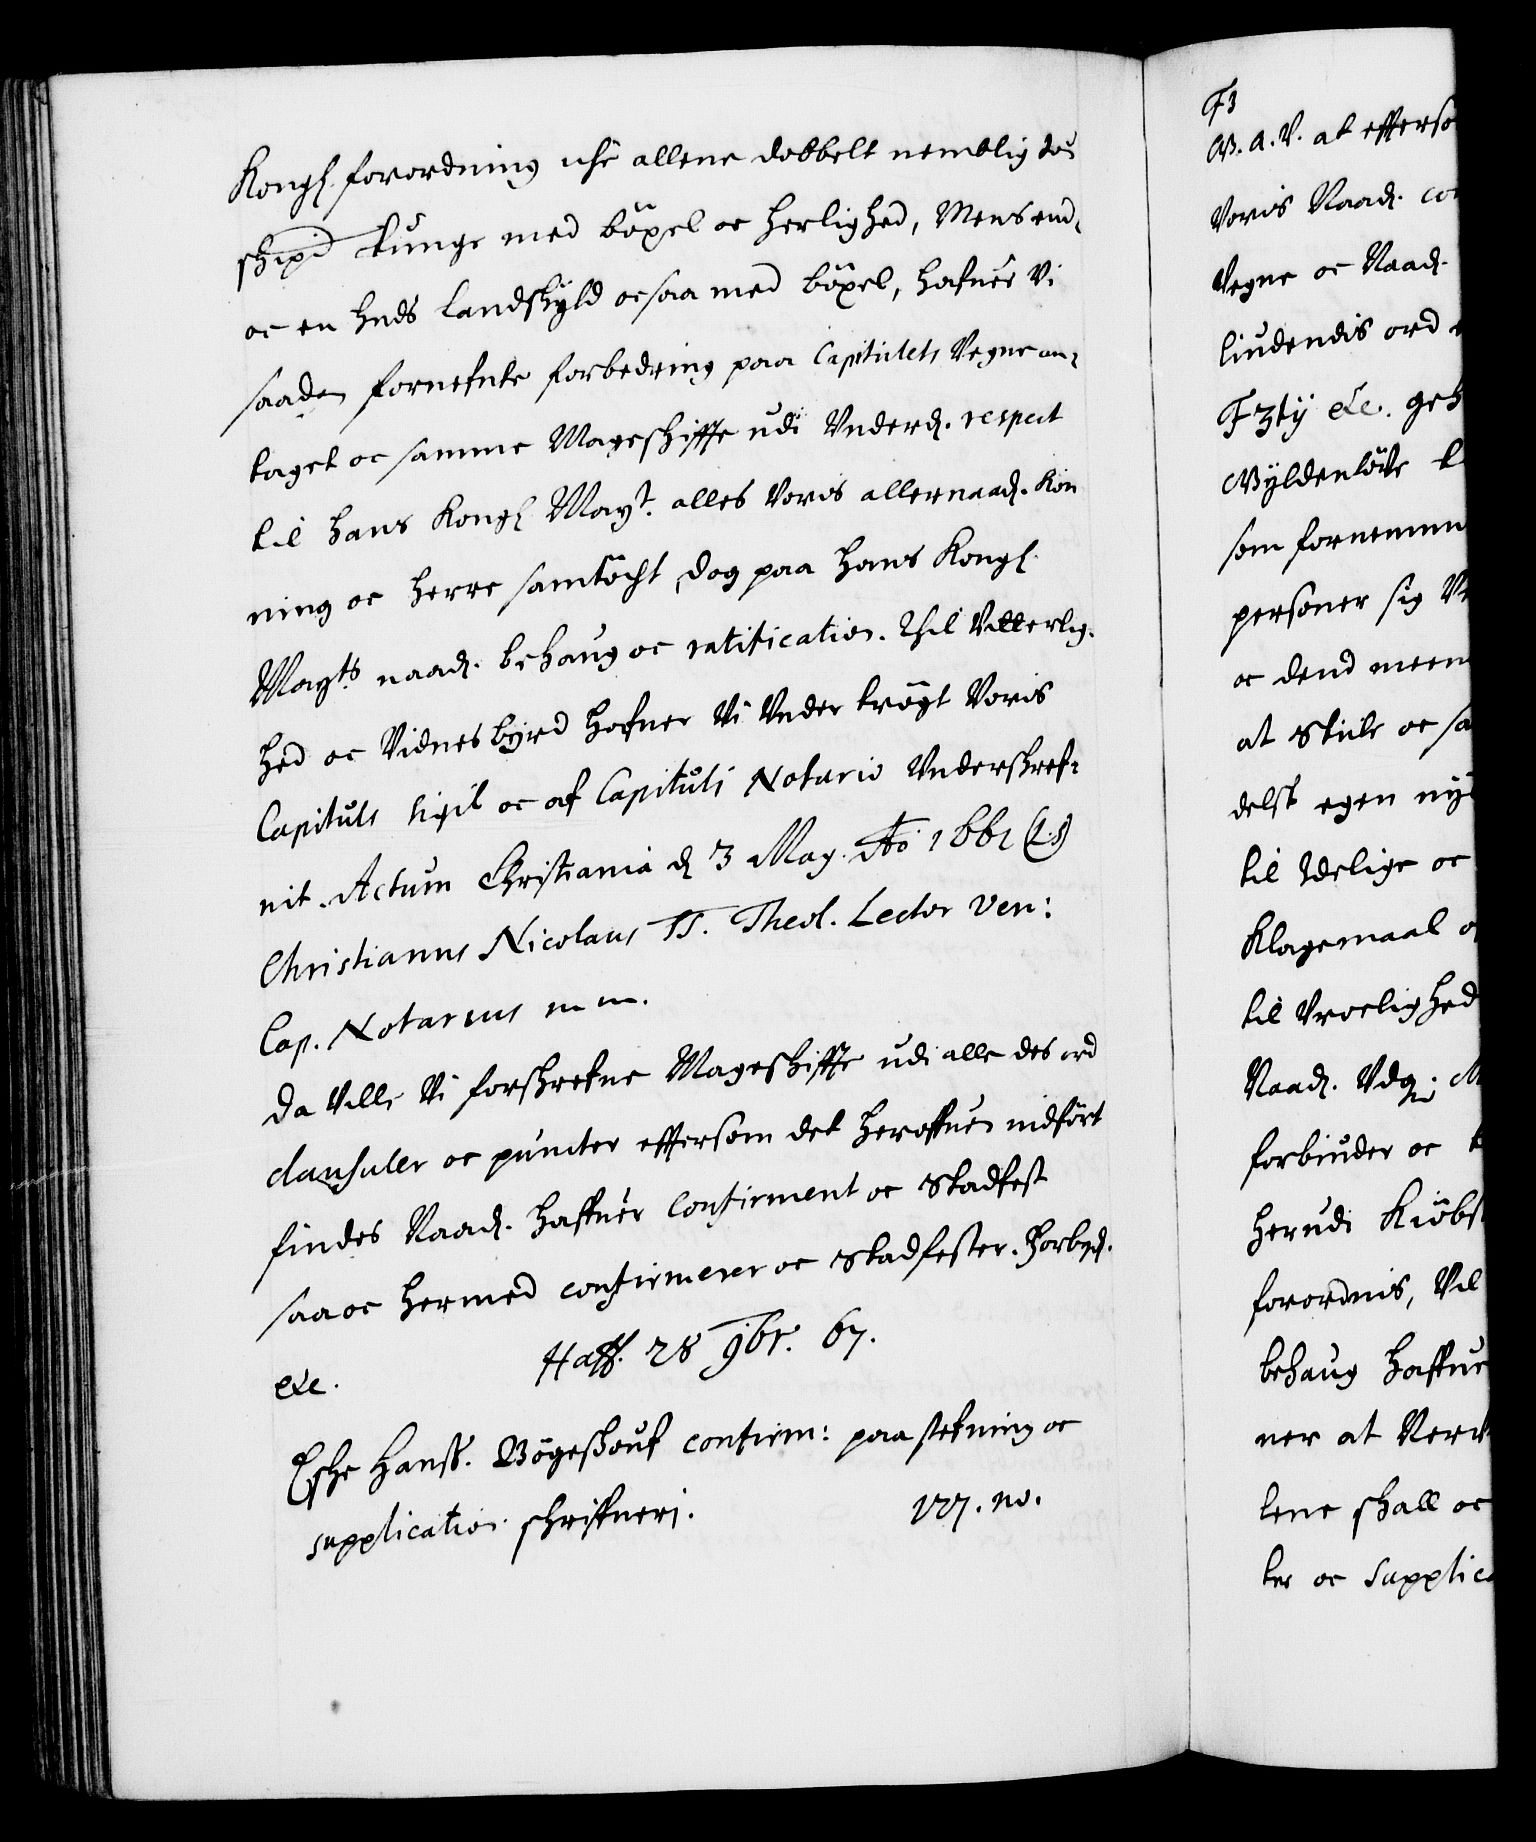 Kongl. forordning iche allene dobbelt nemblig toe
schipd tunge med böxel oc herlighed, Mens end,
oc en huds landschyld ocsaa med böxel, hafuer Vi
saaden fornefnte forbedring paa Capitulets Vegne an,
taget oc samme Mageschiffte udi Underd. respect
til hans Kongl Mayt. alles Voris allernaad. Kon
ning oc herre samtöcht, dog paa hans Kongl.
Mayts naad. behaug oc ratification. Thil Vitterlig,
hed oc Vidnesbyrd hafuer Vi Under trögt Voris
Capituls Sigil oc af Capituli Notario Underschref,
uit. Actum Christiania d 3 May. Ao 1661 (L.S)
Christianus Nicolaus SS. Theol. Lector Ven:
Cap. Notarius mm.
Da Ville Vi forschrefne Mageschiffte udi alle des ord
clausuler oc puncter effersom det heroffuen indfört
findes Naad. haffuer Confirmerit oc Stadfest
saa oc hermed confirmerer oc Stadfester. Forbyd.
etc. Haff. 28 9br. 67.
Esche Hanss. Bögeskouf confirm: paa stefning oc
supplication schriffueri. vvj. no.
F3
G. A. V. at efferso
Voris Naad. con
Vegne oc Naad.
liudendis ord
F3ty etc. geh
Gyldenlöve t
som fornemm
personer sig V
oc dend meen
at Stile oc sa
delst egen nÿt
til Idelige oc
Klagemaal o
til Uroelighed
Naad. Udg. M
forbiuder oc
herudi Kiöbst
forordnis, Vil
behaug haffue
ner at Verck
lene shall oc
ter oc Supplica